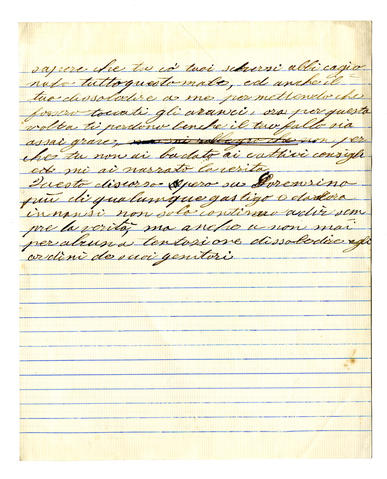 sapere che tu co' tuoi scherni abbi cagio
nato tutto questo male, ed anche il
tuo dissobdire a me permettendo che
fossero toccati gli aranci; ora per questa
volta ti perdono benchè il tuo fallo sia
assai grave, non per
che tu non ai badato ai cattivi consigli
ed mi ai narrato la verità.
Questo discorso operò su Lorenzino
più di qualunque gastigo e da ora
innanzi non solo continuò a dir sem
pre la verità, ma anche a non mai
per alcuna tentazione dissobdire agli
ordini de suoi genitori